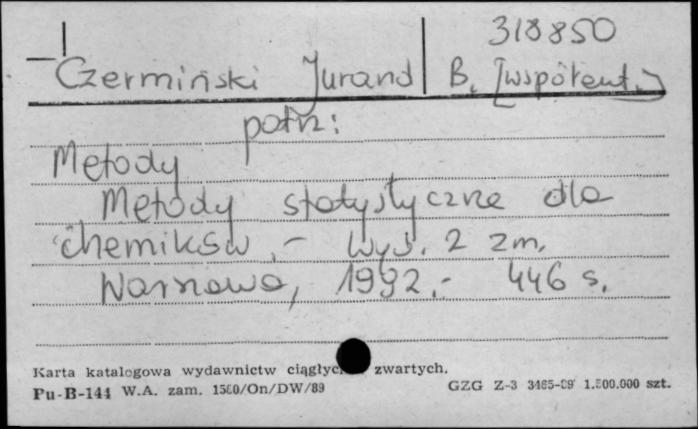 318850
Czermiński Jurand B. [współaut.]
patrz:
Metody
Metody statystyczne dla
chemików .- wyd. 2 zm.
Warszawa, 1992.- 446 s.
Karta katalogowa wydawnictw zwartych.
Pu-B-144 W.A. zam. 1580/On/DW/89 GZG Z-3 1.500.000 szt.